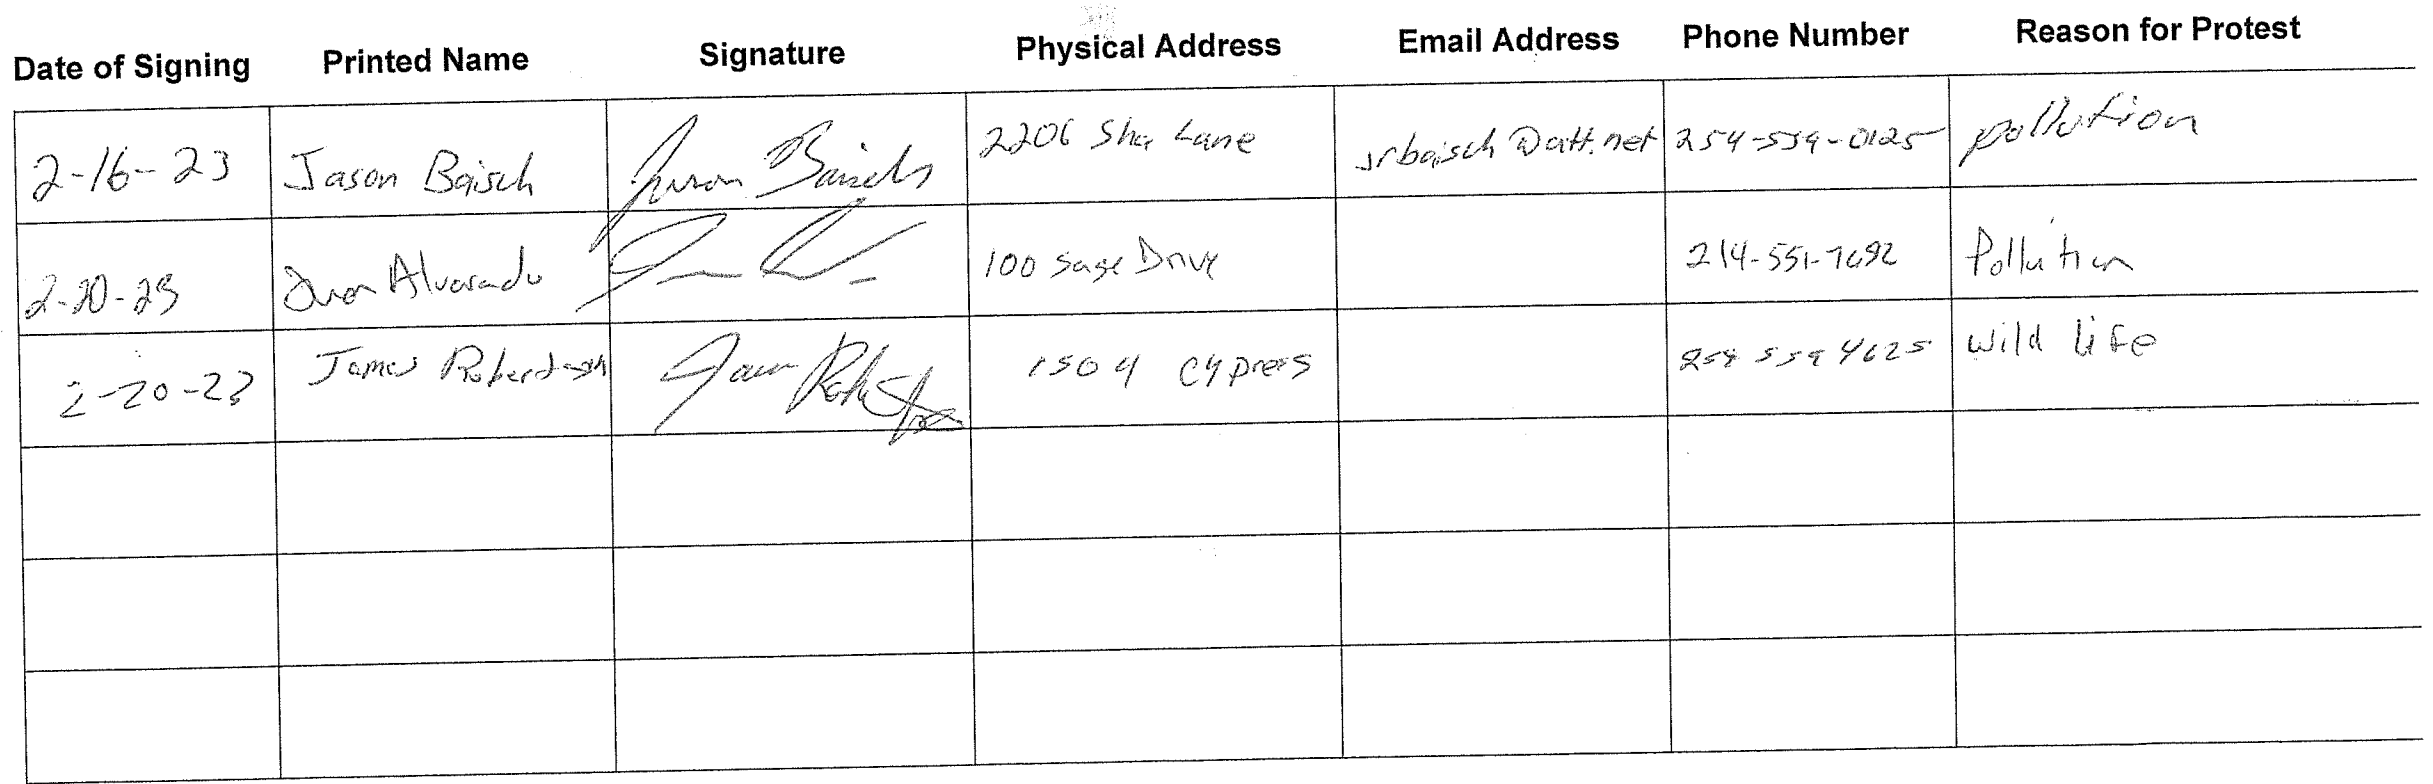 Date of Signing Printed Name Signature Physical Address Email Address Phone Number Reason for Protest
2-16-23 Jason Baisch Jason Baisch 2206 Sha Lane jrbaisch@att.net 254-559-0125 pollution
2-20-23 Juan Alvarado 100 Sage Drive 214-551-7692 Pollution
2-20-23 James 1504 Cypress 254 559 4625 wild life